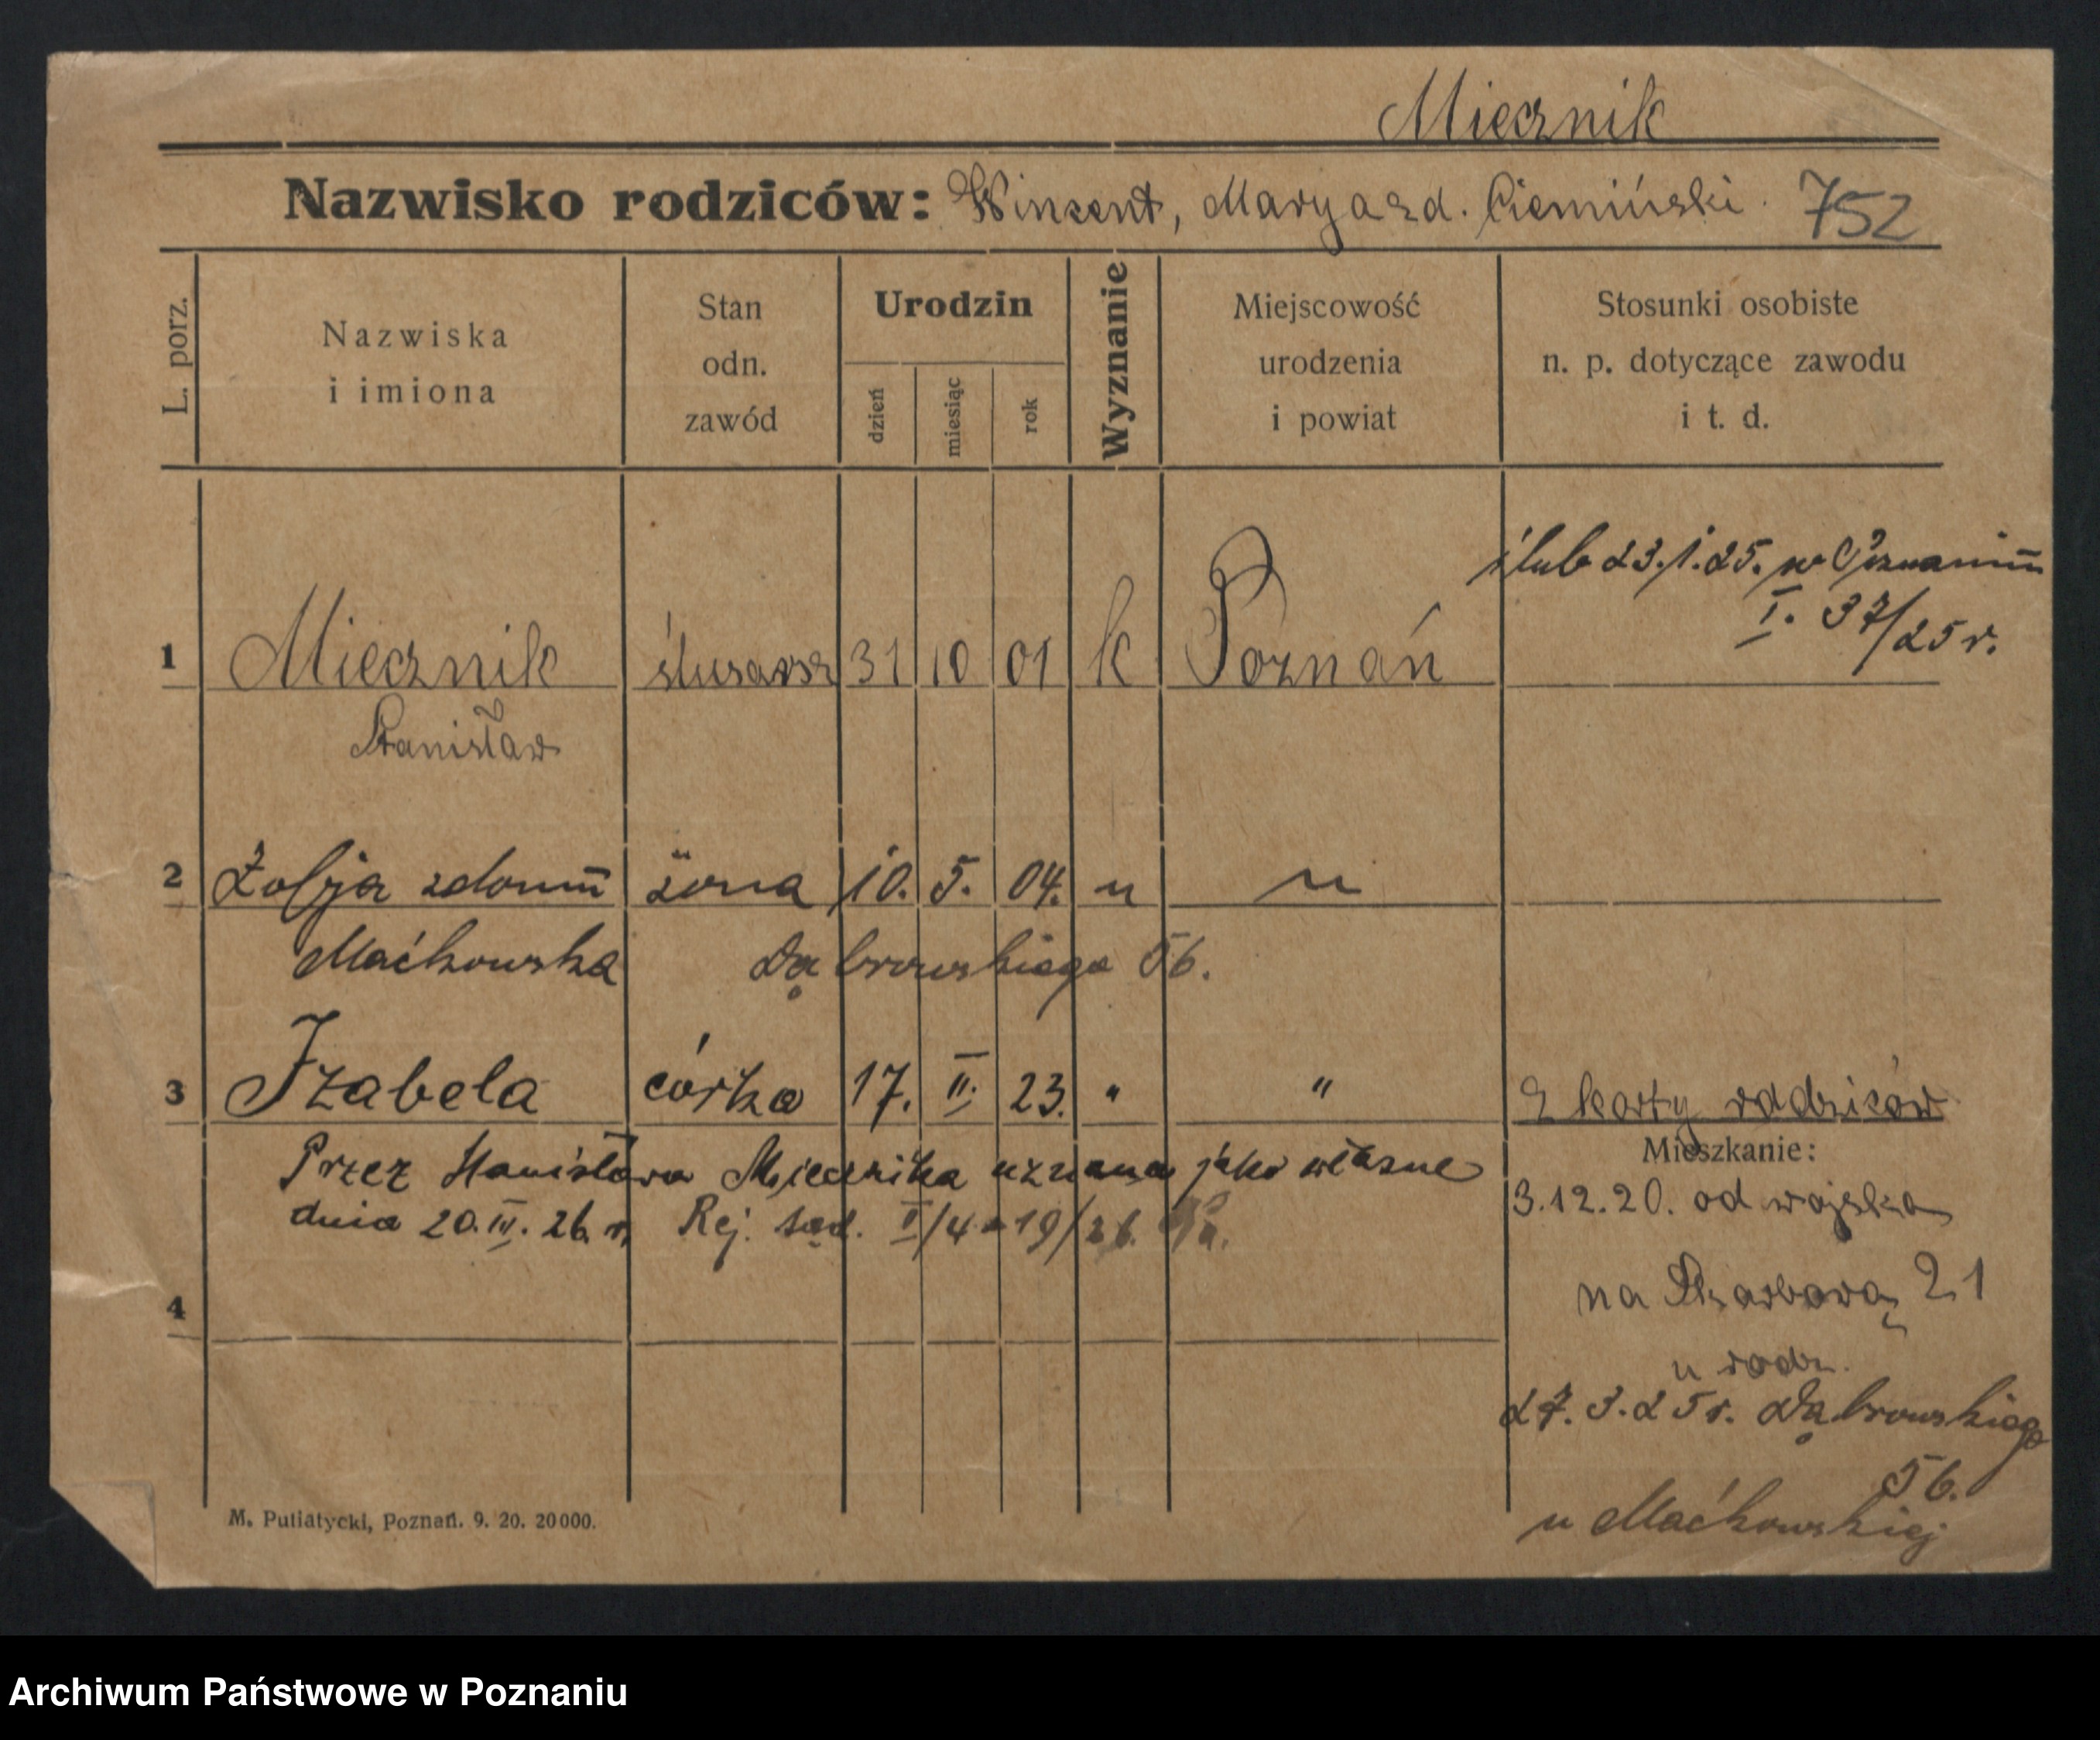 Miecznik
Nazwisko rodziców: Winzent, Marya zd. Ciemiński. 752
L. porz.
Nazwiska
i imiona
Stan
odn.
zawód
Urodzin
dzień
miesiąc
rok
Wyznanie
Miejscowość
urodzenia
i powiat
Stosunki osobiste
n. p. dotyczące zawodu
i t. d.
ślub 23.1.25. w Poznaniu
I. 37/25 r.
1 Miecznik ślusarz 31 10 01 k Poznań
Stanisław
2 Zofja zdomu żona 10. 5. 04. " "
Maćkowska Dąbrowskiego 56.
3 Izabela córka 17. II. 23. " " z karty rodziców
Przez Stanisława Miecznika uznana jako własne
dnia 20.III.26 r. Rej. sąd. II/4 19/26.
4
Mieszkanie:
3.12.20. od wojska
na Skarbową 21
u rodz.
27.3.25 r. Dąbrowskiego
56.
u Maćkowskiej
M. Putiatycki, Poznań. 9. 20. 20000.
Archiwum Państwowe w Poznaniu